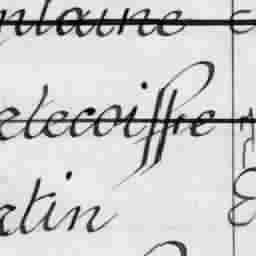 ntaine
elecoiffre
rtin